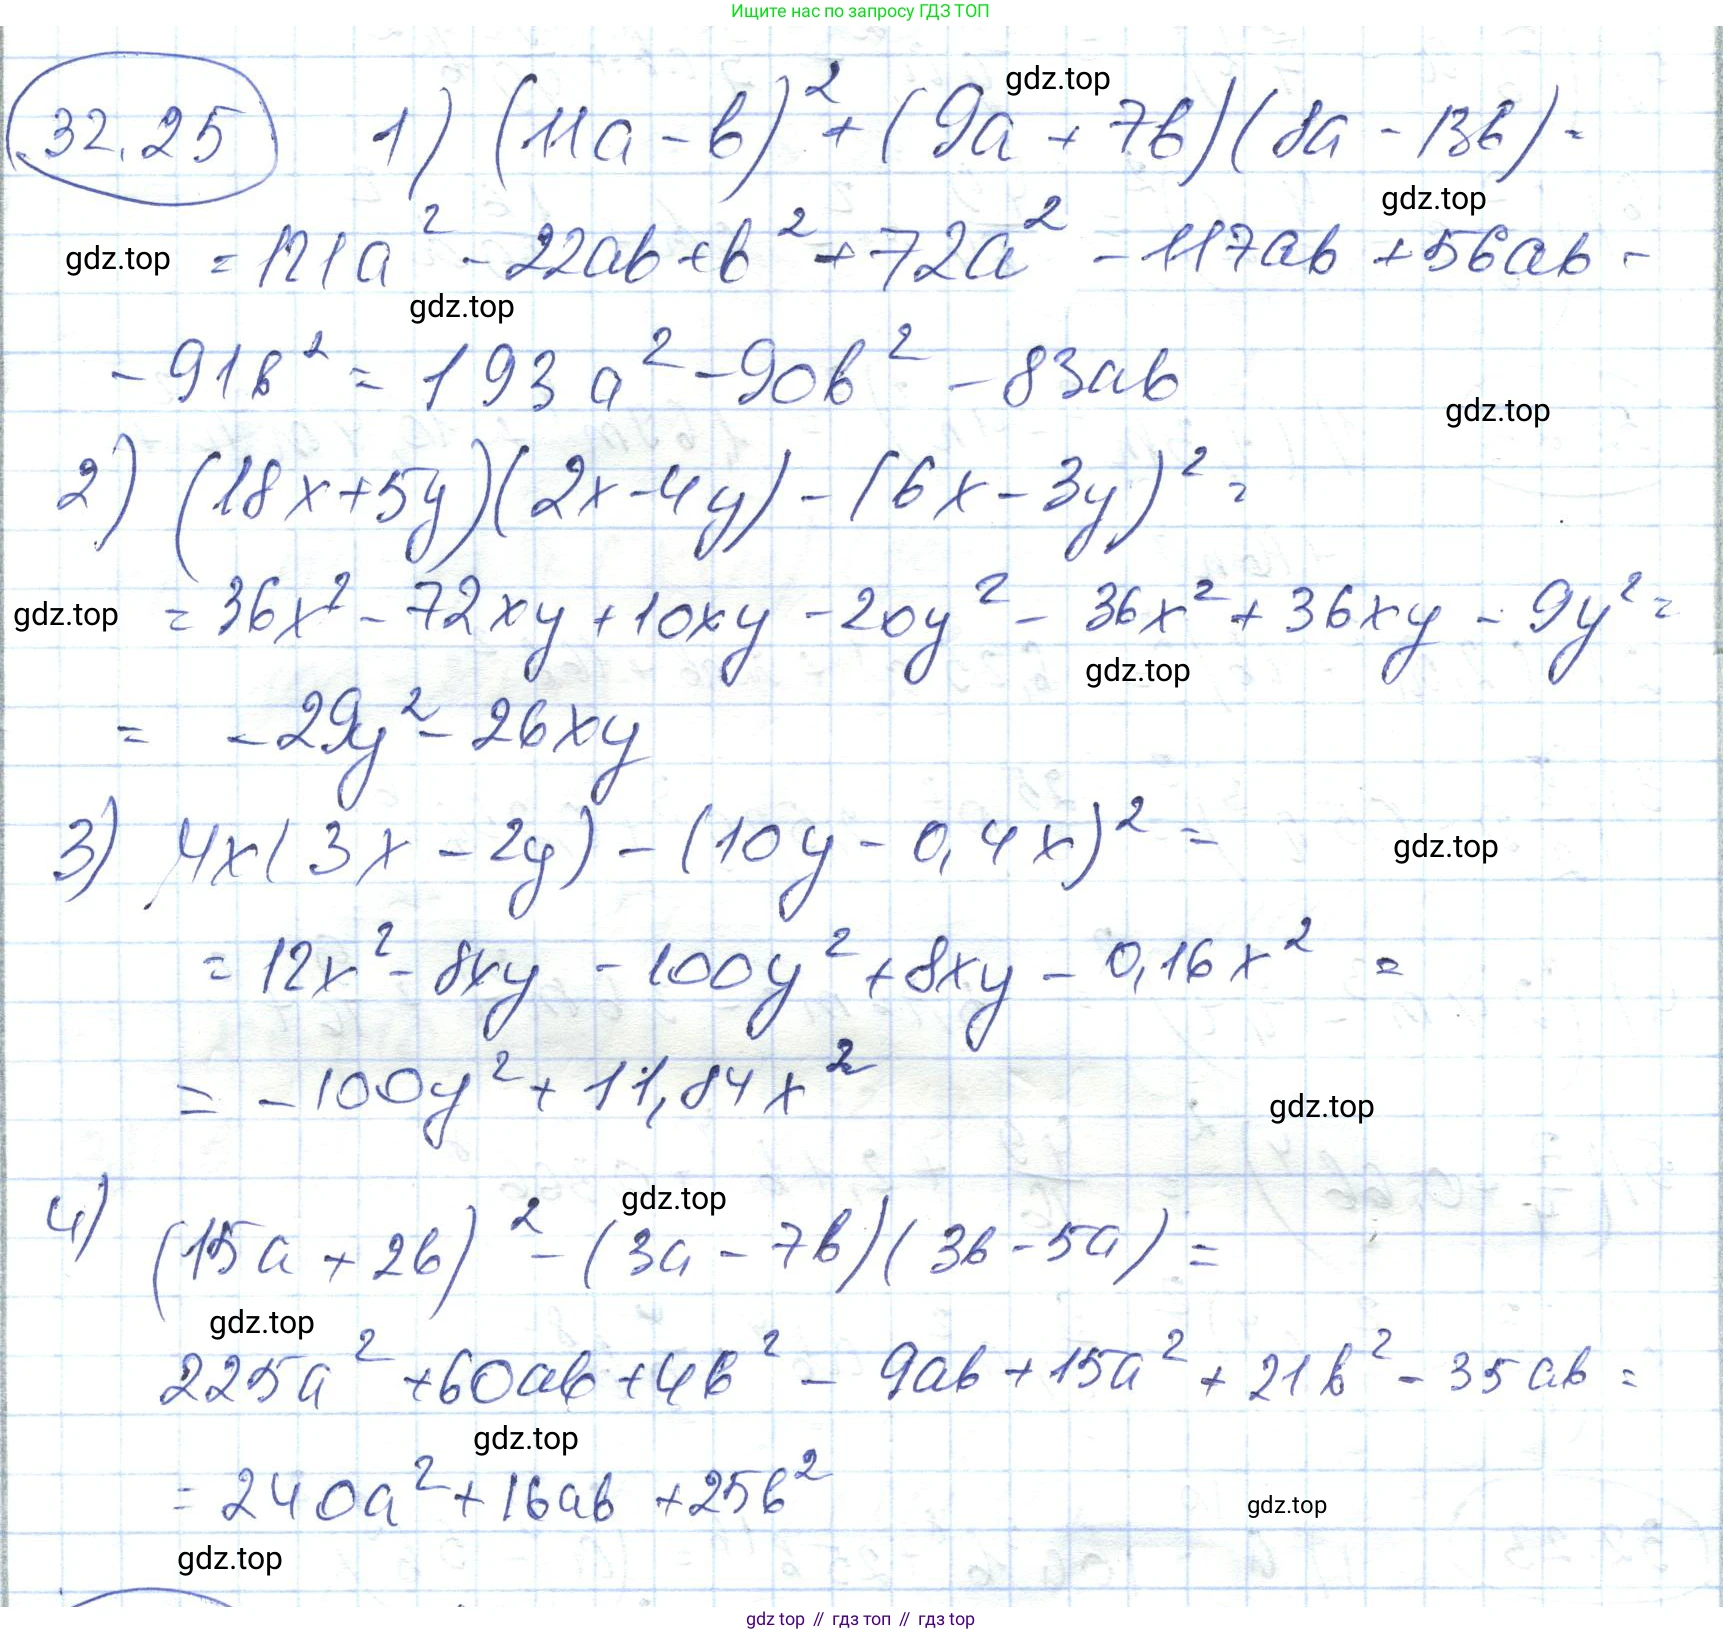 Ищите нас по запросу ГДЗ ТОП
32.25 1) (11a - b)² + (9a + 7b)(8a - 13b) =
gdz.top
gdz.top
= 121a² - 22ab + b² + 72a² - 117ab + 56ab -
gdz.top
gdz.top
- 91b² = 193a² - 90b² - 83ab
gdz.top
2) (18x + 5y)(2x - 4y) - (6x - 3y)² =
= 36x² - 72xy + 10xy - 20y² - 36x² + 36xy - 9y² =
gdz.top
gdz.top
= -29y² - 26xy
3) 4x(3x - 2y) - (10y - 0,4x)² =
gdz.top
= 12x² - 8xy - 100y² + 8xy - 0,16x² =
= -100y² + 11,84x²
gdz.top
gdz.top
4) (15a + 2b)² - (3a - 7b)(3b - 5a) =
gdz.top
225a² + 60ab + 4b² - 9ab + 15a² + 21b² - 35ab =
gdz.top
= 240a² + 16ab + 25b²
gdz.top
gdz.top
gdz top // гдз топ // gdz top